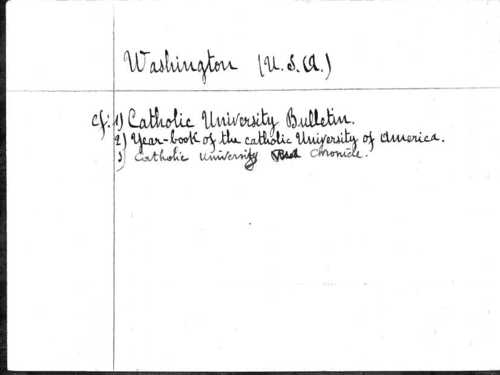 Washington (U.S.A.)
cf: 1) Catholic University Bulletin.
2) Year-book of the catholic University of America.
3) Catholic University Chronicle.